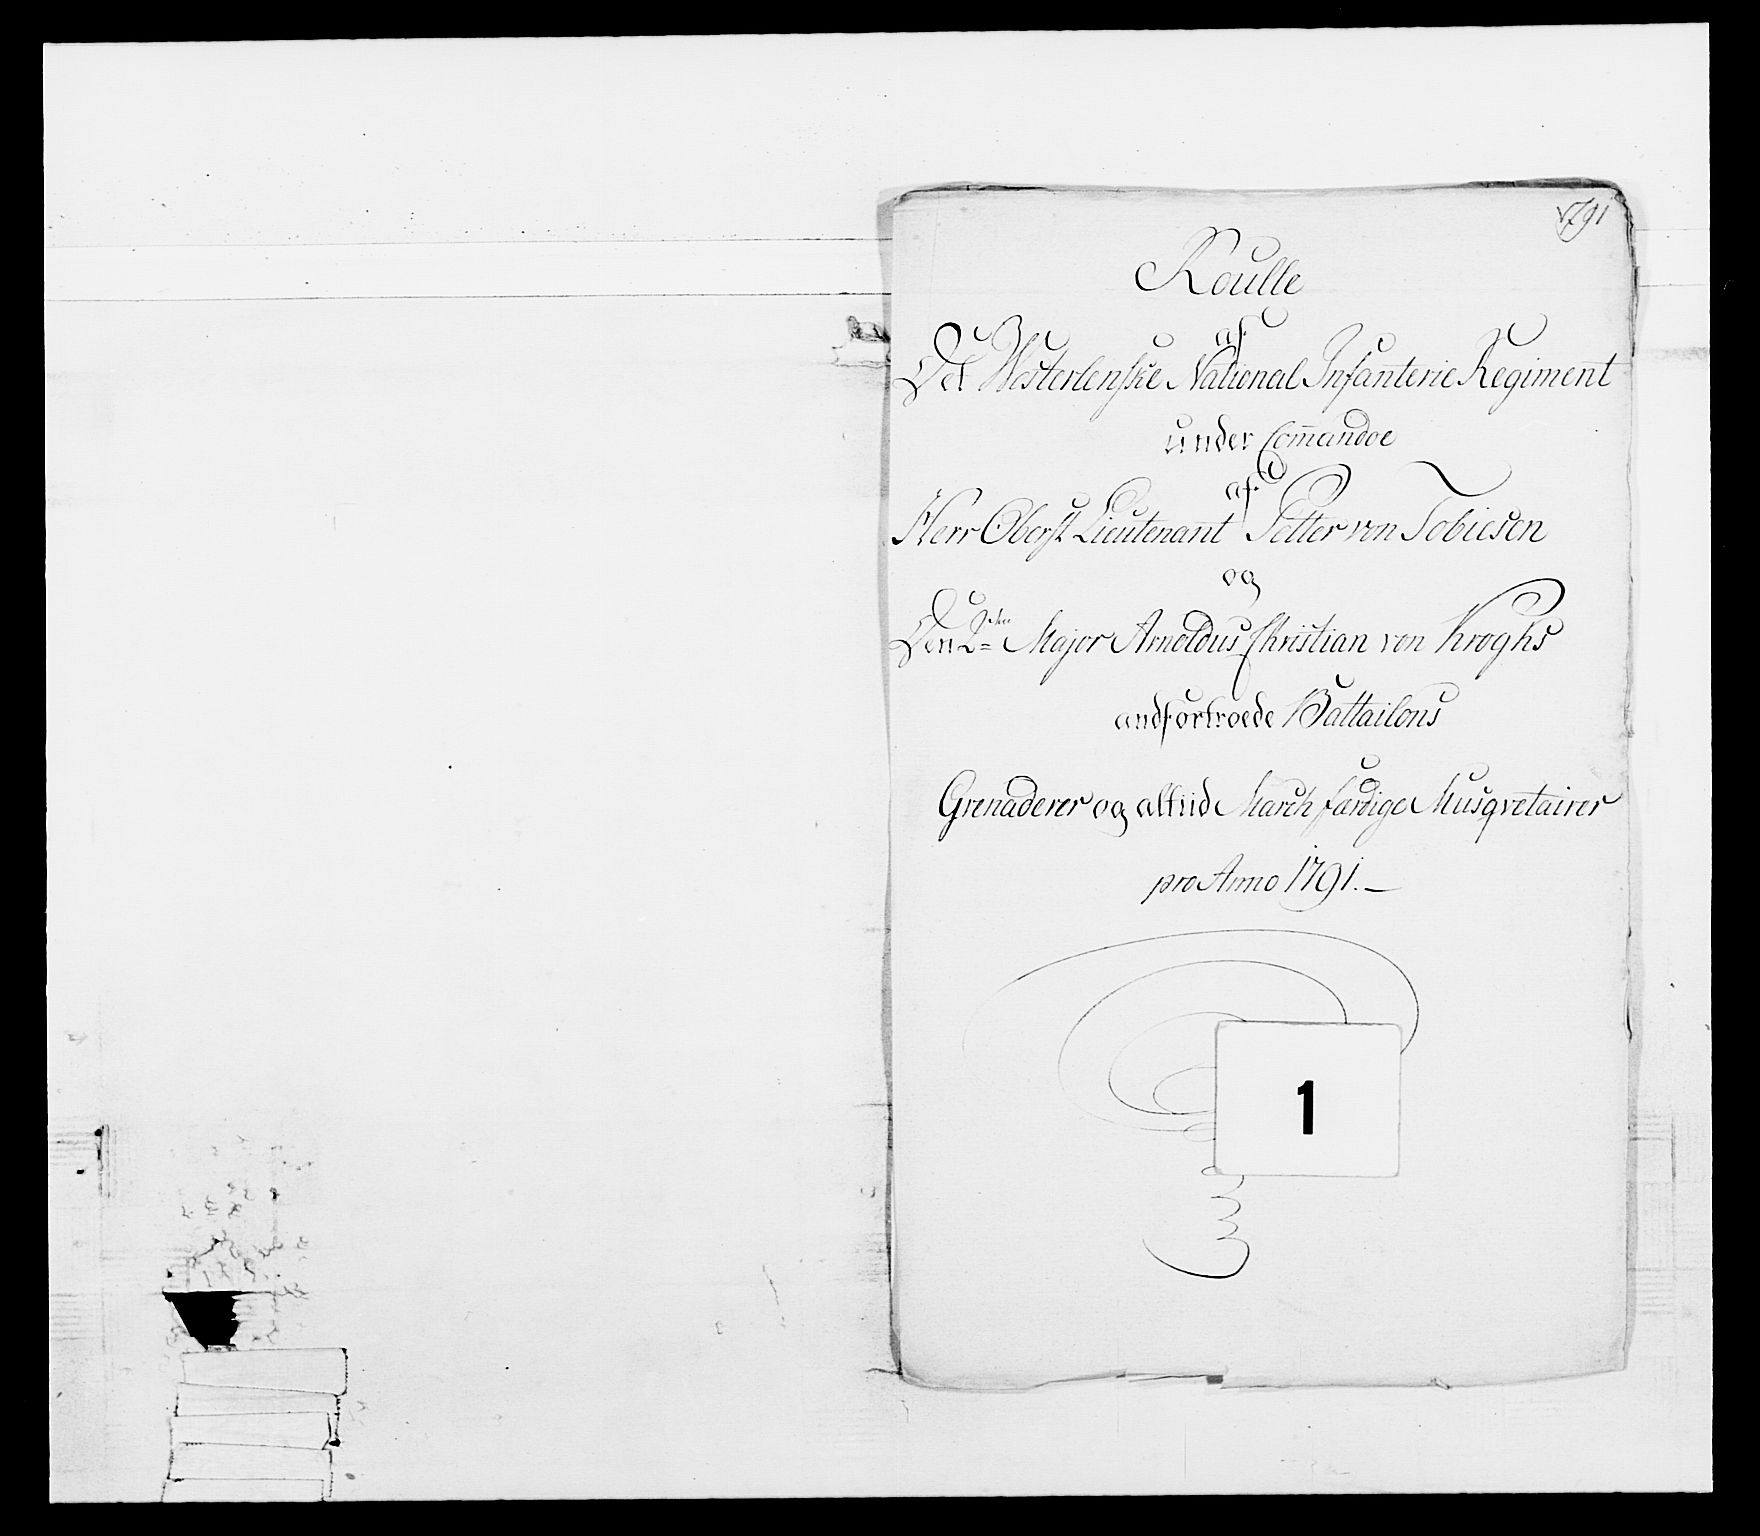 1791
Roulle
af
Det Westerlenske National Infanterie Regiment
under Com̅andoe
af
Herr Oberst Lieutenant Petter von Tobiesen
og
Den 2den Major Arnoldus Christian von Kroghs
andfortroede Battailons
Grenaderer og altiid March færdige Musqvetairer
pro Anno 1791.
1